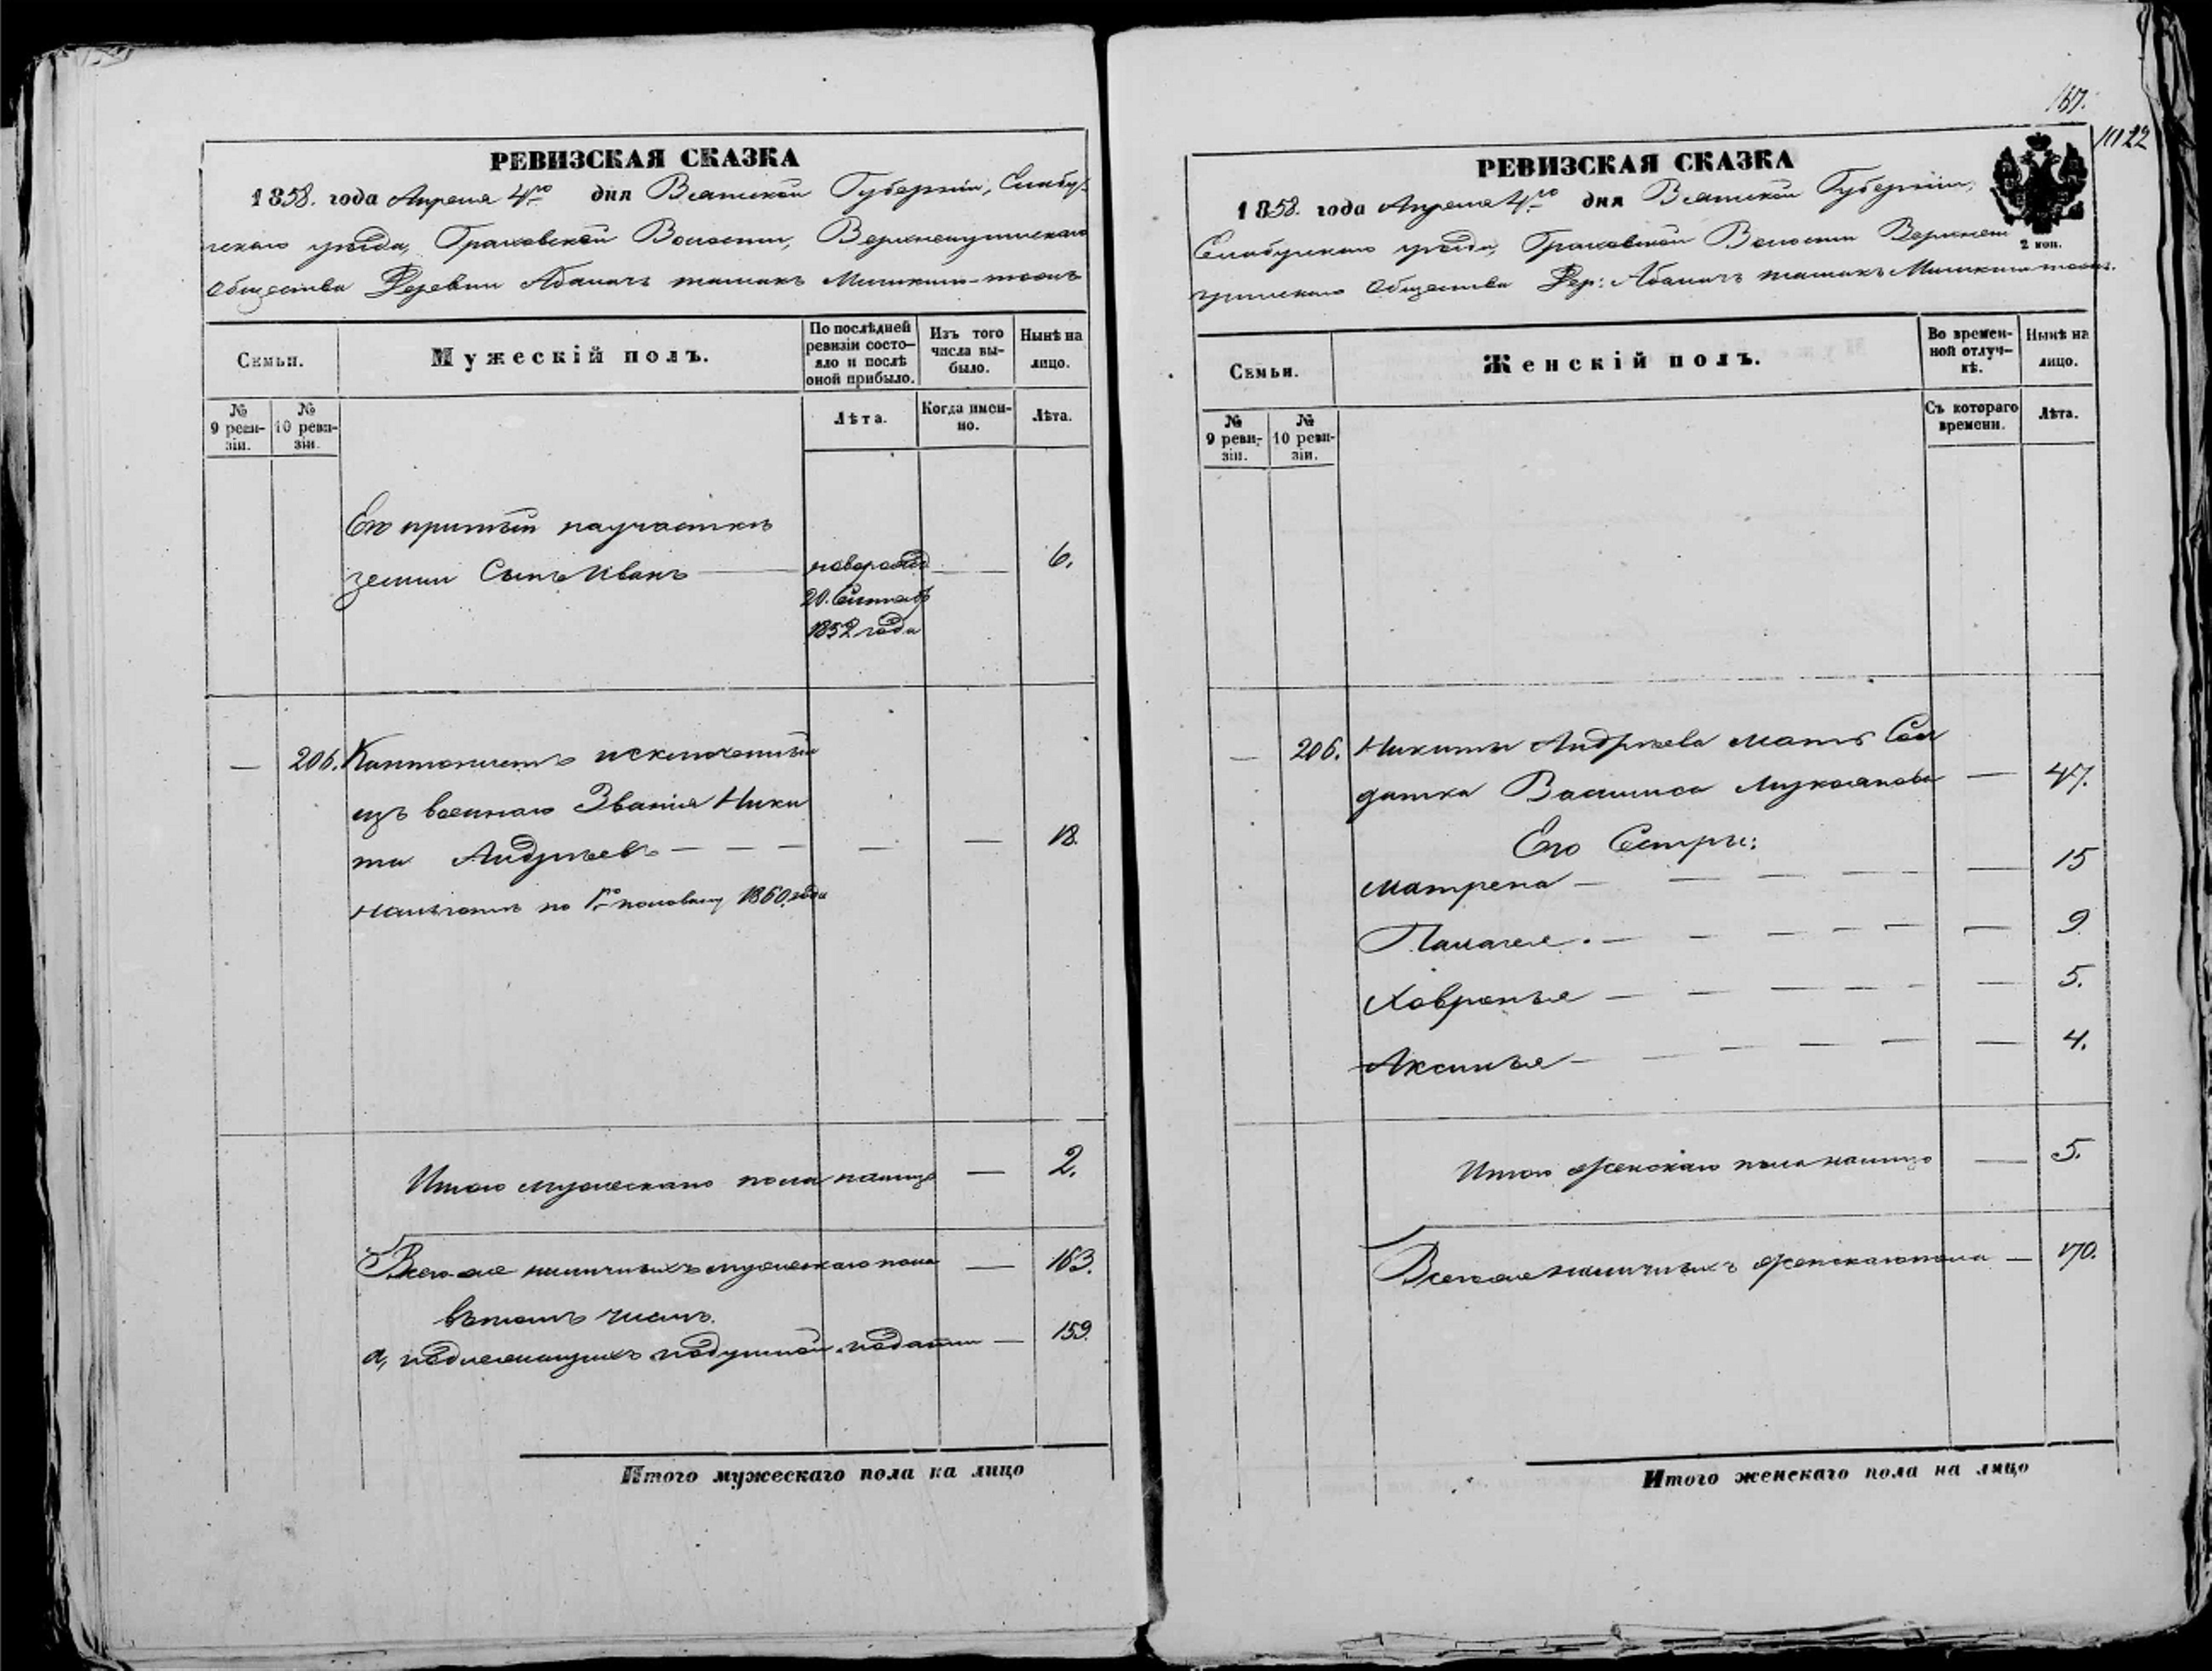 РЕВИЗСКАЯ СКАЗКА
1858. года Апреля 4го дня Вятской Губернiи, Елабуж-
скаго уѣзда, Граховской Волости,
Общества Деревни
Семьи.
Мужескiй полъ.
По послѣдней ревизiи состояло и послѣ оной прибыло.
Изъ того числа выбыло.
Нынѣ на лицо.
№ 9 ревизiи.
№ 10 ревизiи.
Лѣта.
Когда именно.
Лѣта.
Его принятый
земли Сынъ Иванъ
новорожд
20. Сентяб
1852 года
6.
206. Кантонистъ исключенный
изъ военнаго Званiя Ники
та Андреевъ
18.
по 1ю половину 1860 года
Итого мужескаго пола налицо — 2.
Всего-же наличныхъ мужескаго пола — 163.
въ томъ числѣ.
а, подлежащихъ подушной подати — 159.
Итого мужескаго пола на лицо
167.
1122
РЕВИЗСКАЯ СКАЗКА
1858. года Апреля 4го дня Вятской Губернiи,
2 коп.
уѣзда, Граховской Волости
Общества Дер:
Семьи.
Женскiй полъ.
Во временной отлучкѣ.
Нынѣ на лицо.
№ 9 ревизiи.
№ 10 ревизiи.
Съ котораго времени.
Лѣта.
206. Никиты Андреева мать Сол
датка Василиса — 47.
Его Сестры:
Матрена — 15
Палагея. — 9
Ховронья — 5.
Аксинья — 4.
Итого женскаго пола налицо — 5.
Всего же наличныхъ женскаго пола — 170.
Итого женскаго пола на лицо